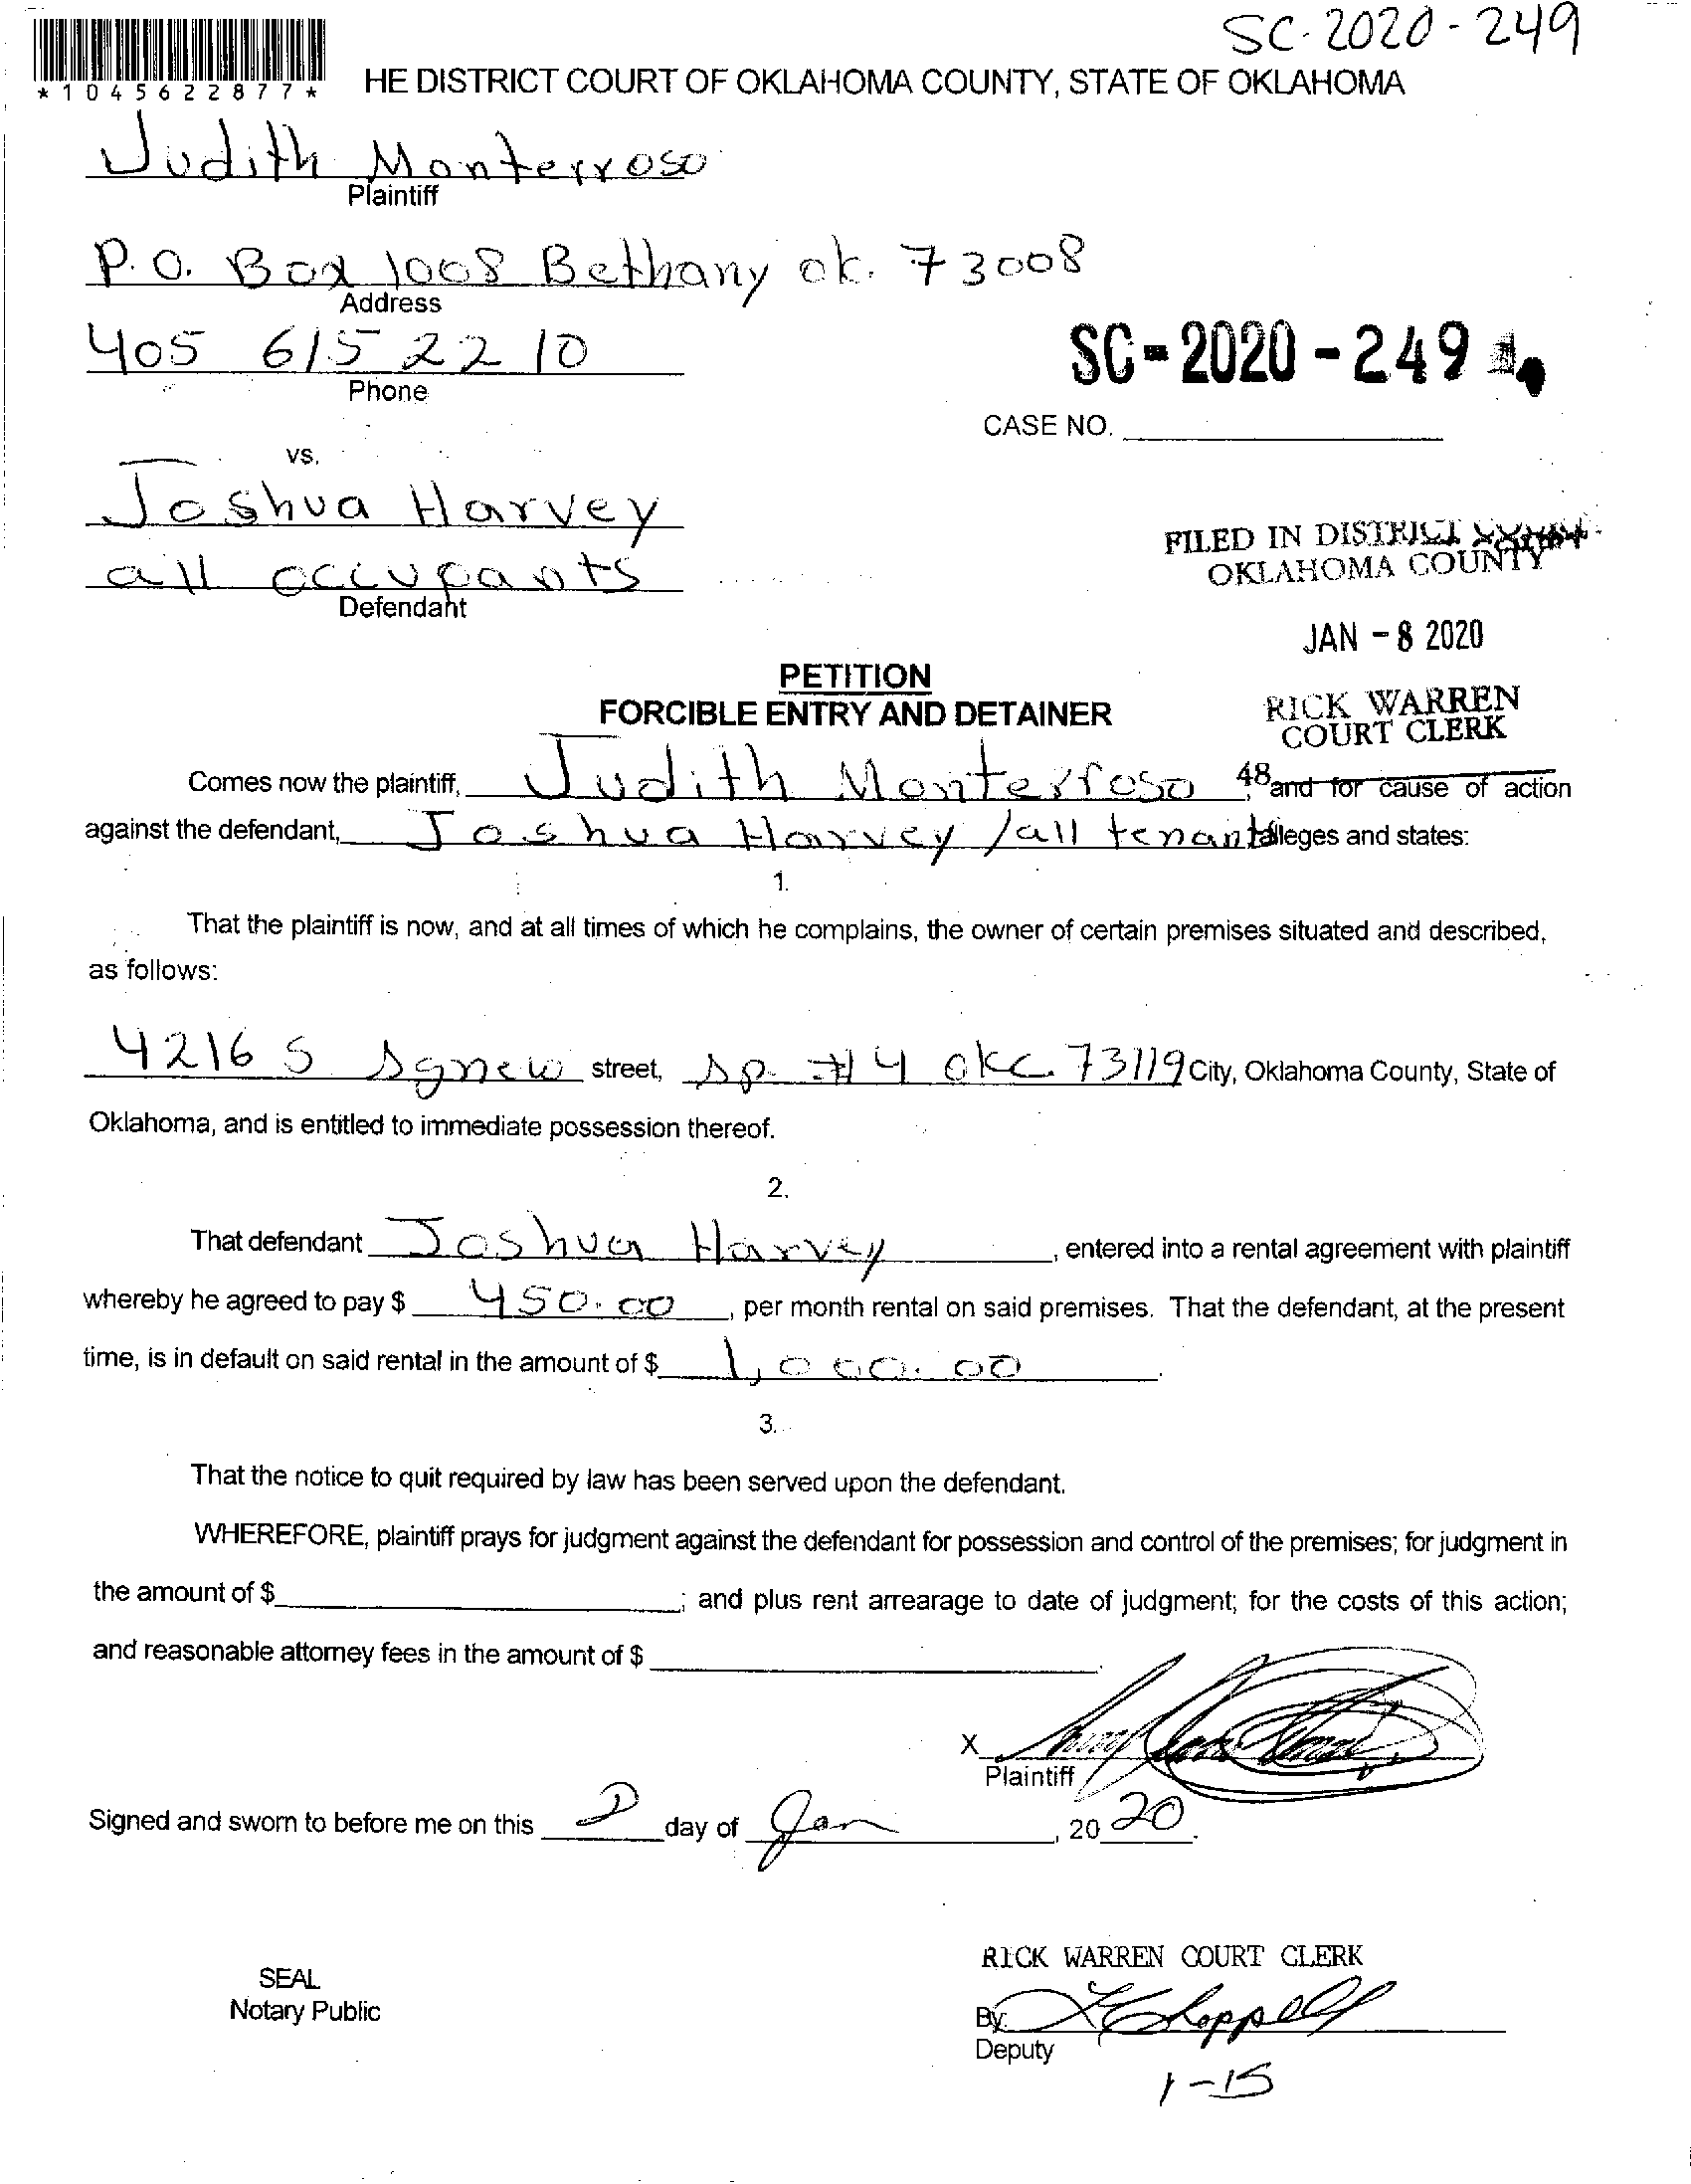 SC-2020-249
*1045622877*
HE DISTRICT COURT OF OKLAHOMA COUNTY, STATE OF OKLAHOMA
Judith Monterroso
Plaintiff
P.O. Box 1008 Bethany ok. 73008
Address
405 615 2210
Phone
SC-2020-249
CASE NO.
vs.
Joshua Harvey
all occupants
Defendant
FILED IN DISTRICT
OKLAHOMA COUNTY
JAN - 8 2020
PETITION
FORCIBLE ENTRY AND DETAINER
RICK WARREN
COURT CLERK
Comes now the plaintiff, Judith Monterroso 48 and for cause of action
against the defendant, Joshua Harvey /all tenant alleges and states:
1.
That the plaintiff is now, and at all times of which he complains, the owner of certain premises situated and described,
as follows:
4216 S Agnew street, Sp. #4 okc 73119 City, Oklahoma County, State of
Oklahoma, and is entitled to immediate possession thereof.
2.
That defendant Joshua Harvey, entered into a rental agreement with plaintiff
whereby he agreed to pay $ 450.00, per month rental on said premises. That the defendant, at the present
time, is in default on said rental in the amount of $ 1,000.00.
3.
That the notice to quit required by law has been served upon the defendant.
WHEREFORE, plaintiff prays for judgment against the defendant for possession and control of the premises; for judgment in
the amount of $ ; and plus rent arrearage to date of judgment; for the costs of this action;
and reasonable attorney fees in the amount of $ .
X
Plaintiff
Signed and sworn to before me on this day of Jan, 2020.
SEAL
Notary Public
RICK WARREN COURT CLERK
By:
Deputy
1-15